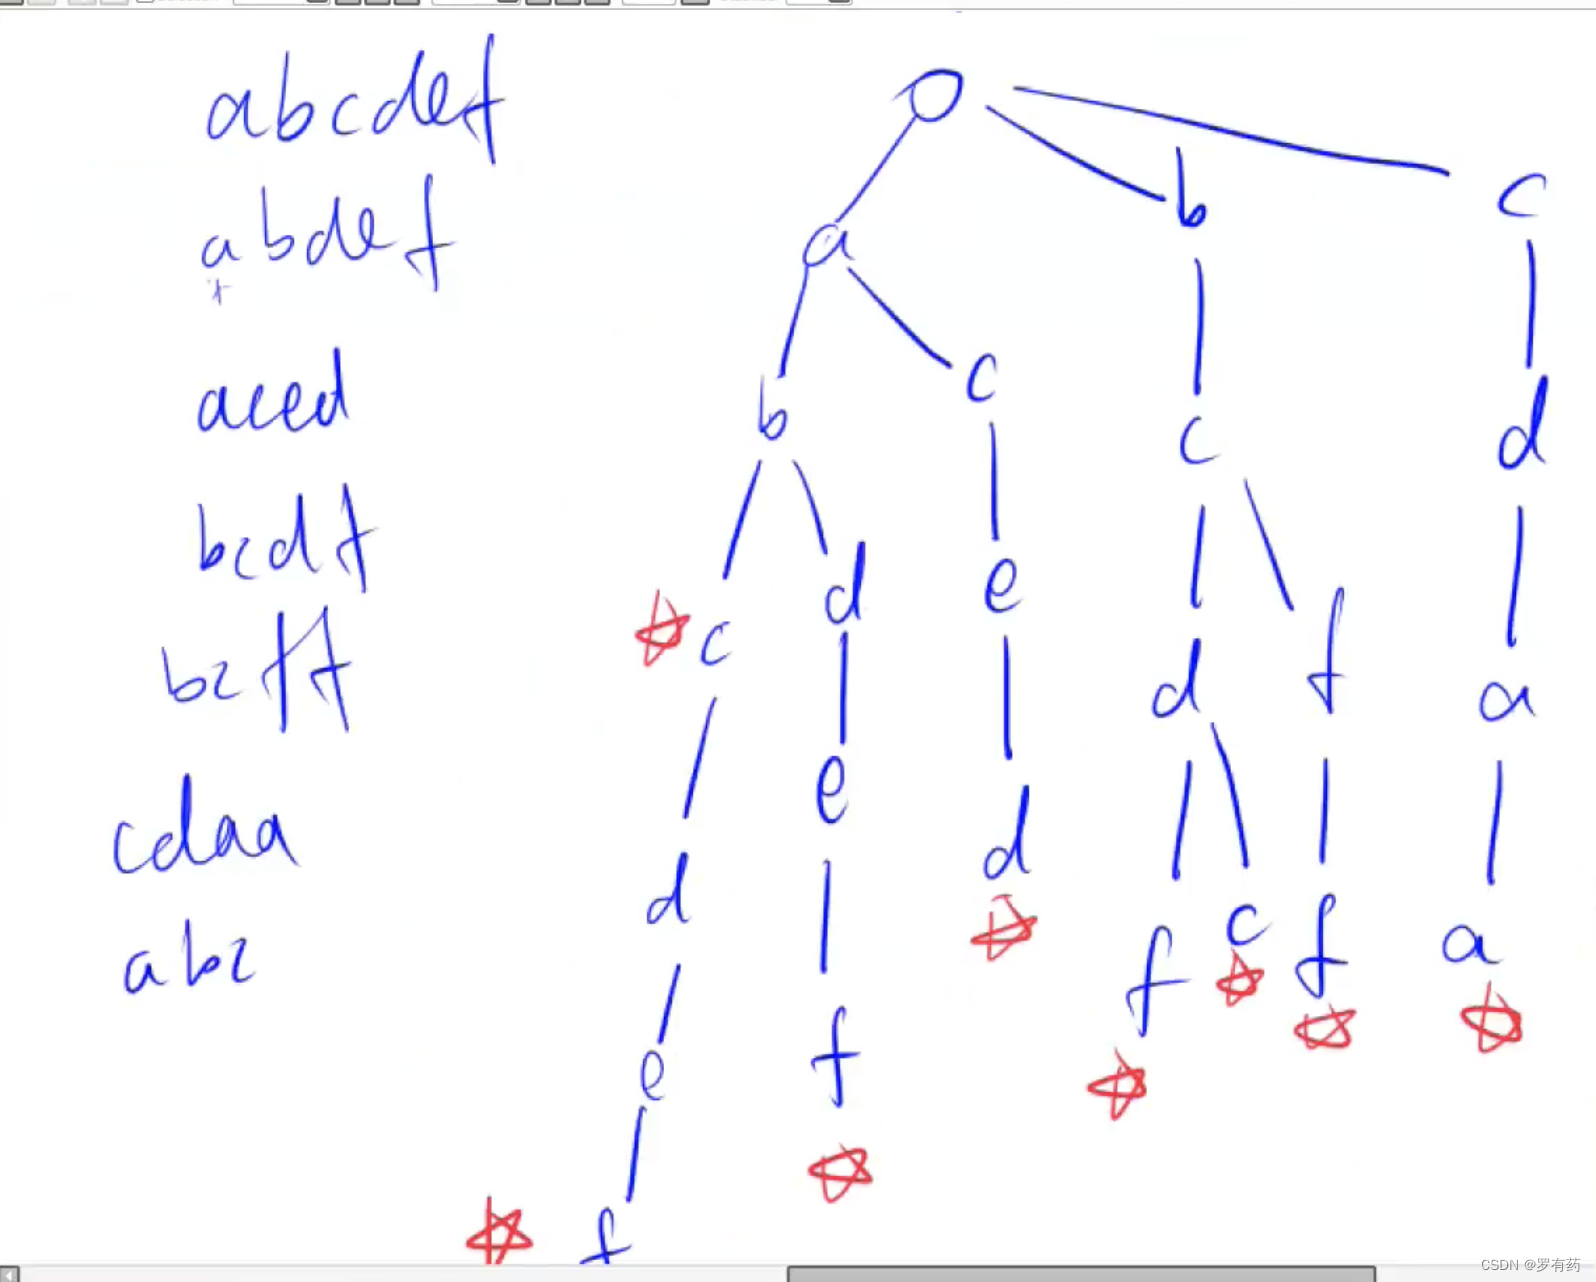 abcdef
abdef
aced
bcdf
bcff
cdaa
abc
a b c
b c c d
c d e d f a
d e d f c f a
e f
f
CSDN @罗有药